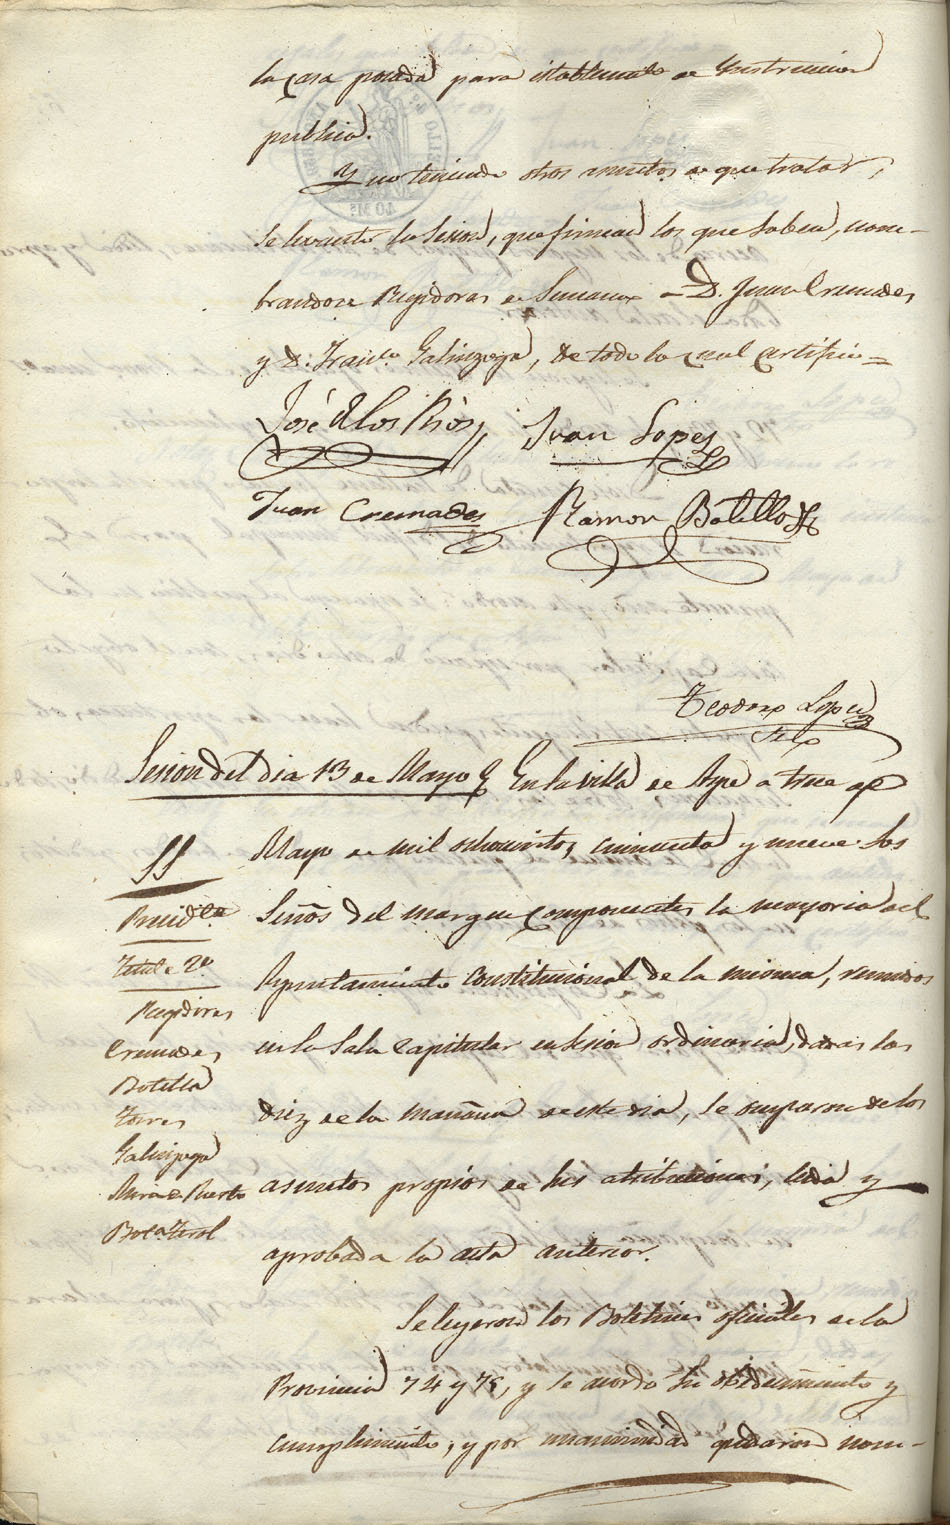 la casa posada para establecimto de Instruccion
publica.
Y no teniendo otros asuntos de que tratar,
se levantó la sesion, que firman los que saben, nom-
brandose Regidores de Semana = D. Juan Cremades
y D. Franco Galinzoga, de todo lo cual certifico =
José de los Rios Juan Lopez
Juan Cremades Ramon Botella
Teodoro Lopez
Srio
Sesion del dia 13 de Mayo En la villa de Aspe a trece de
Mayo de mil ochocientos cincuenta y nueve los
Seños del margen componentes la mayoria del
Ayuntamiento constitucional de la misma, reunidos
en la Sala Capitular en sesion ordinaria, dadas las
diez de la mañana de este dia, se ocuparon de los
asuntos propios de sus atribuciones, leida y
aprobada la acta anterior.
Se leyeron los Boletines oficiales de la
Provincia 74 y 75, y se acordó su obedecimiento y
cumplimiento, y por unanimidad quedaron nom-
SS
Presidte
Tente 2º
Regidores
Cremades
Botella
Torres
Galinzoga
Mira de Puerto
Bot. Terol